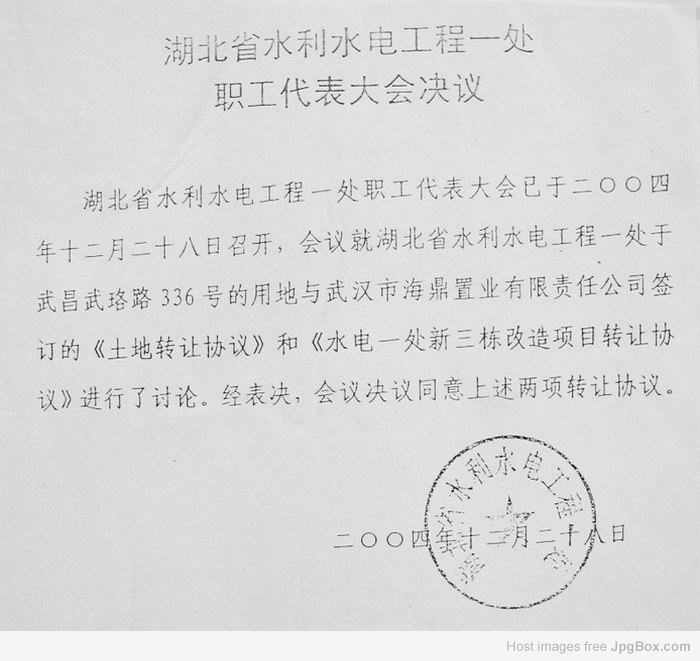 湖北省水利水电工程一处
职工代表大会决议
湖北省水利水电工程一处职工代表大会已于二〇〇四
年十二月二十八日召开，会议就湖北省水利水电工程一处于
武昌武珞路336号的用地与武汉市海鼎置业有限责任公司签
订的《土地转让协议》和《水电一处新三栋改造项目转让协
议》进行了讨论。经表决，会议决议同意上述两项转让协议。
省水利水电工程
二〇〇四年十二月二十八日
Host images free JpgBox.com